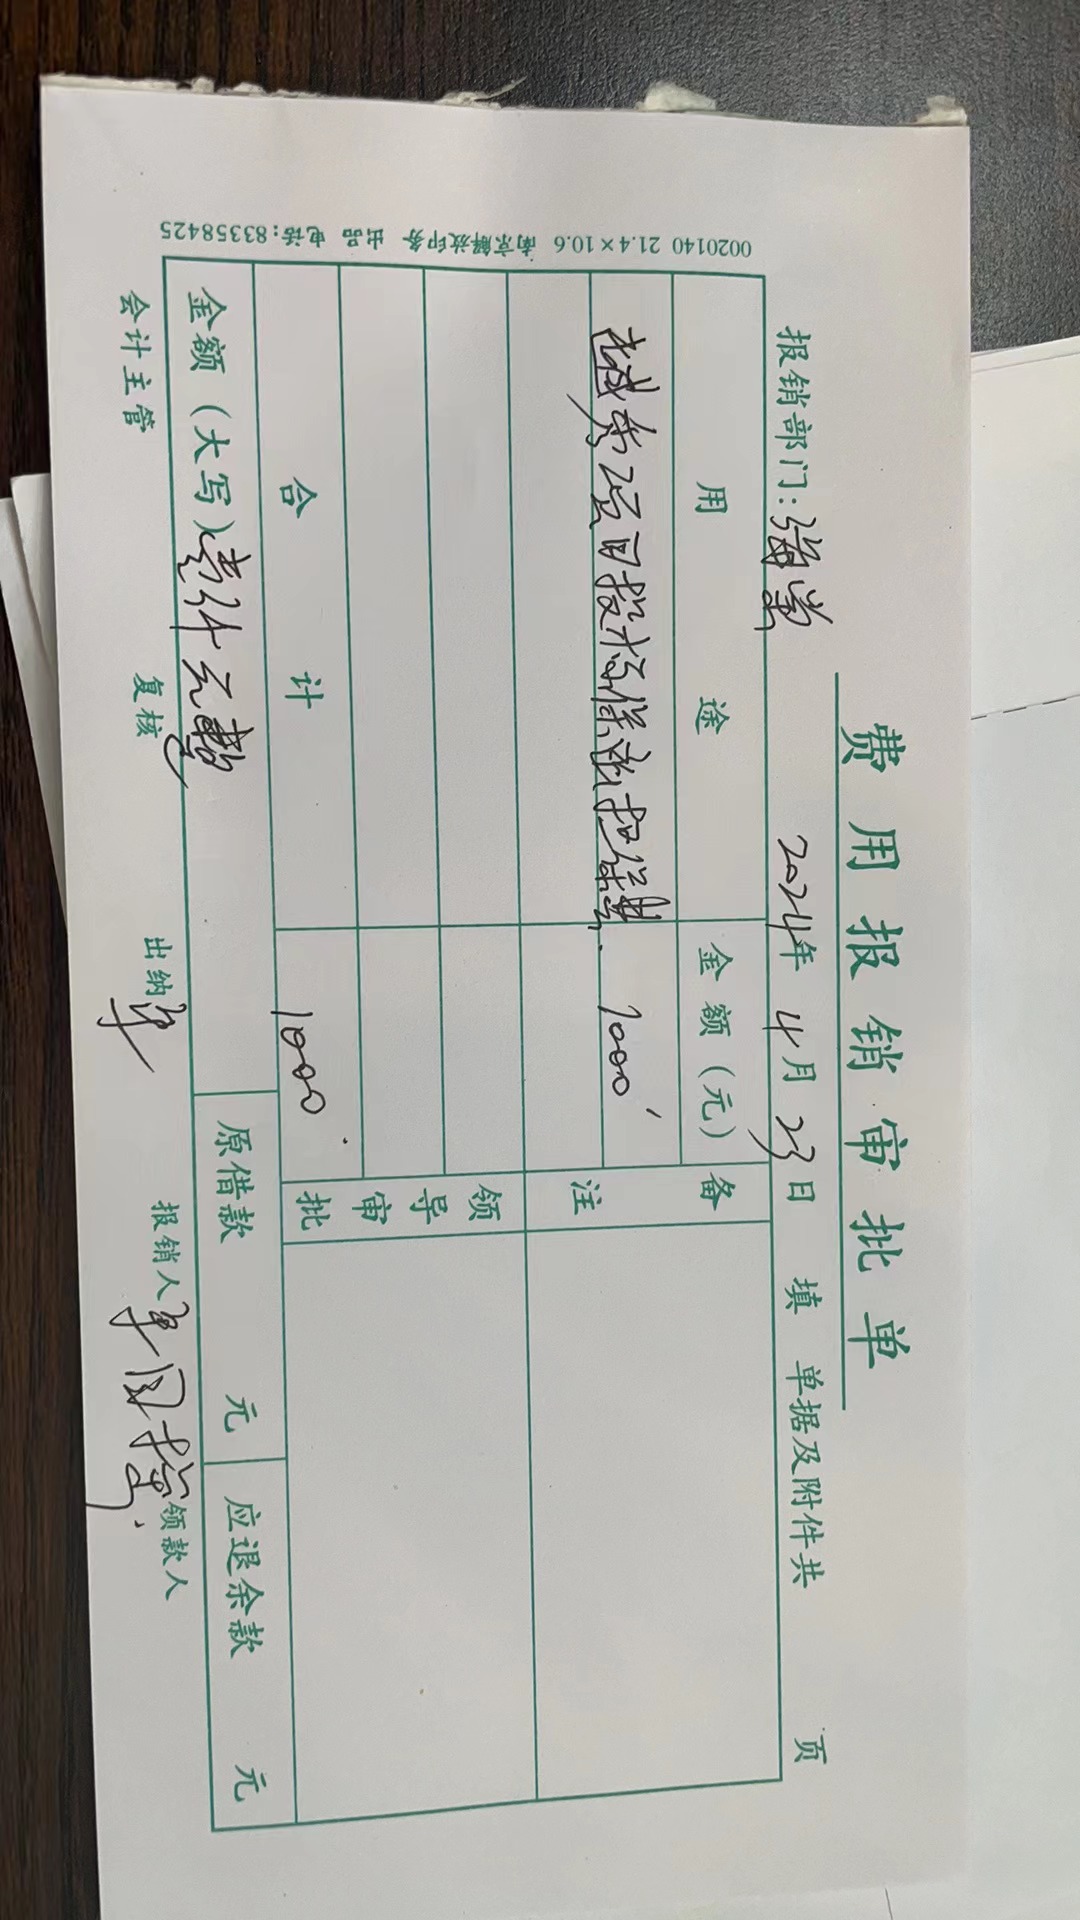 费用报销审批单
报销部门: 2024年 4月 23日 填 单据及附件共 页
用 途 金 额(元) 备注
项目投标保函担保费 1000
领导审批
合 计 1000
金额(大写)壹仟元整 原借款 元 应退余款 元
会计主管 复核 出纳 报销人 领款人
0020140 21.4×10.6 南京解放印务 出品 电话:83358425